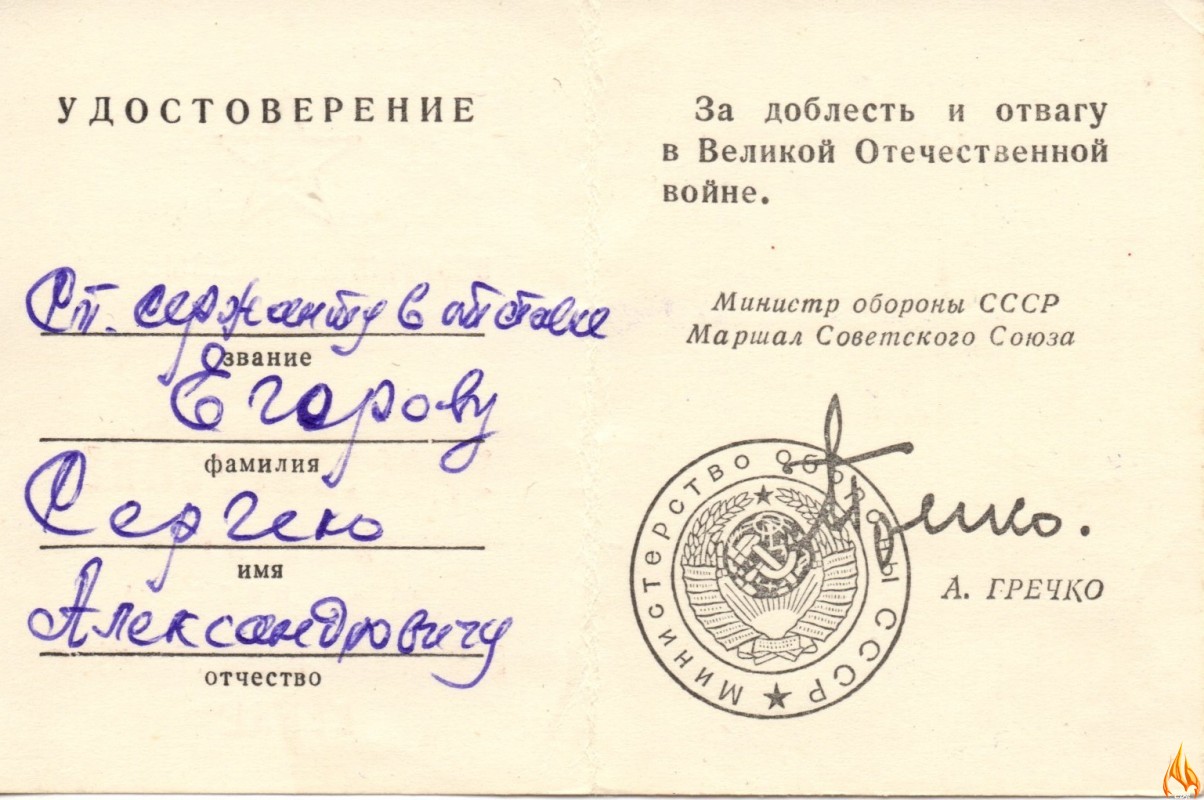 УДОСТОВЕРЕНИЕ
Ст. сержанту в отставке
звание
Егорову
фамилия
Сергею
имя
Александровичу
отчество
За доблесть и отвагу
в Великой Отечественной
войне.
Министр обороны СССР
Маршал Советского Союза
Гречко.
Министерство Обороны СССР
А. ГРЕЧКО